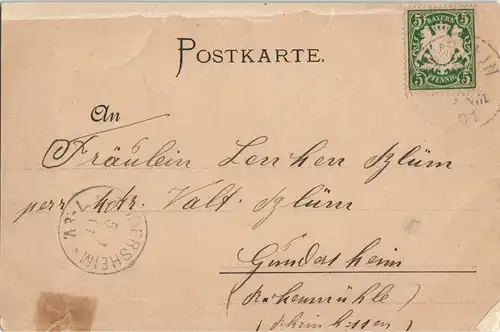 POSTKARTE.
5 BAYERN 5
5 PFENNIG 5
An
Fräulein Lenchen Blüm
per Adr. Valt. Blüm
Gundersheim
(Rohrmühle)
(Rheinhessen)